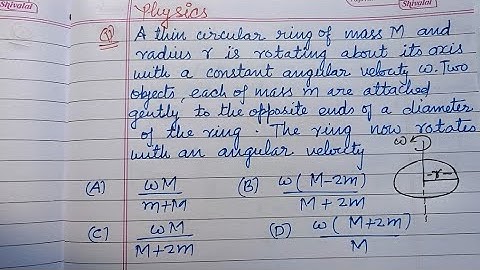 Shivalal
Shivalal
Physics
Q) A thin circular ring of mass M and
radius r is rotating about its axis
with a constant angular velocity ω. Two
objects, each of mass m are attached
gently to the opposite ends of a diameter
of the ring. The ring now rotates
with an angular velocity
ω
r
(A) ωM / m+M (B) ω(M-2m) / M+2m
(C) ωM / M+2m (D) ω(M+2m) / M